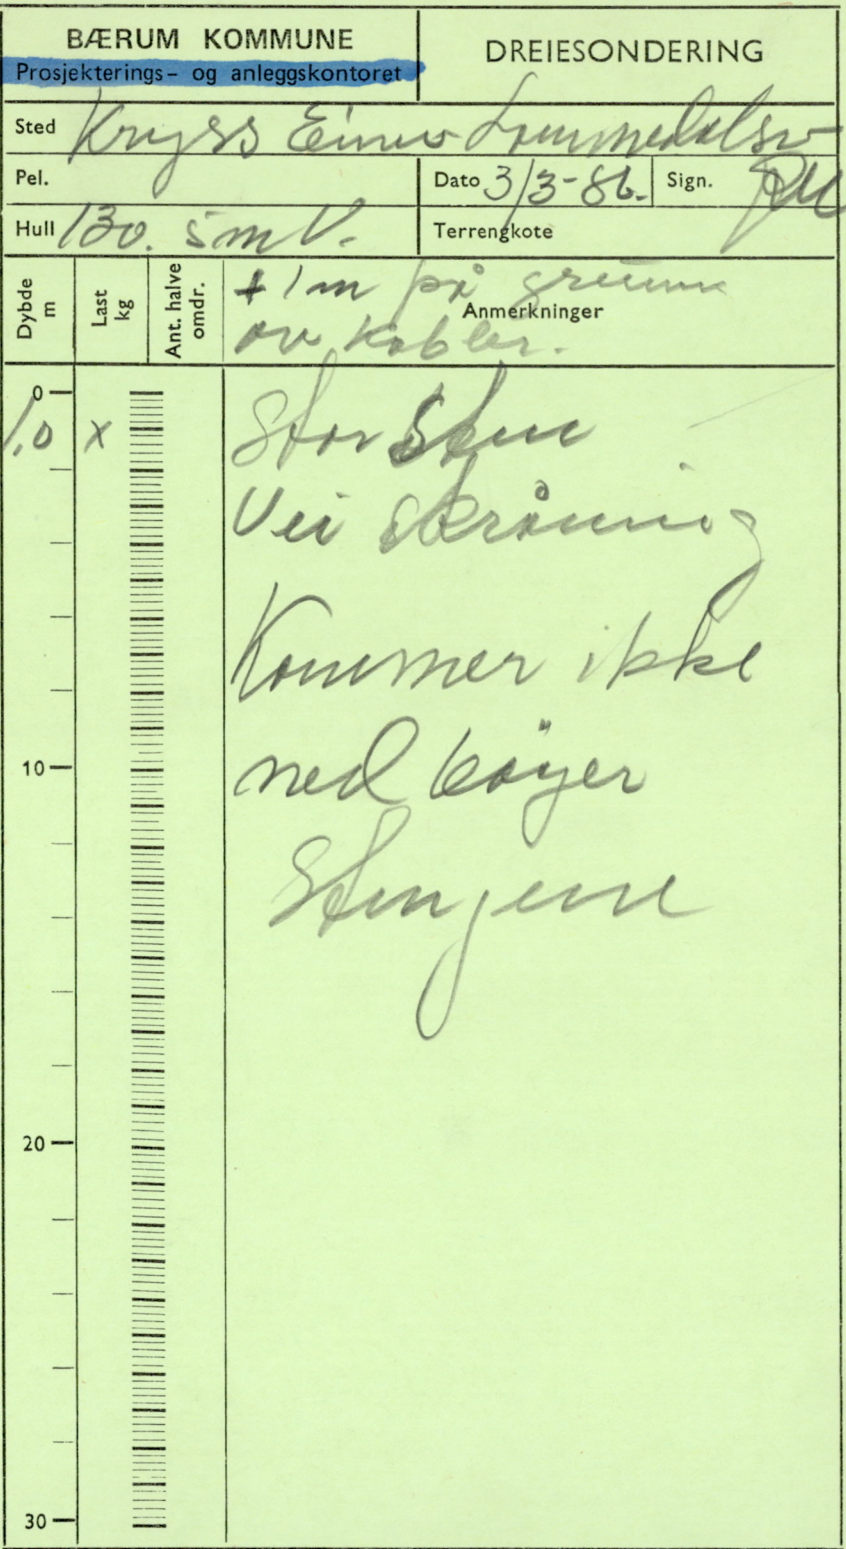 BÆRUM KOMMUNE
Prosjekterings- og anleggskontoret
DREIESONDERING
Sted Kryss Einer Lommedalsv
Pel.
Dato 3/3-86.
Sign.
Hull 130. 5 m V.
Terrengkote
Dybde m
Last kg
Ant. halve omdr.
+ 1 m på grunn
Anmerkninger
av kabler.
0
1,0 x
Stor Sten
Vei skråning
Kommer ikke
ned bøyer
Stengene
10
20
30